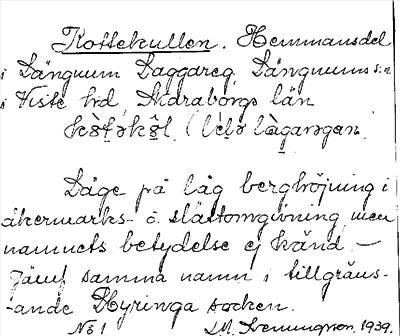 Kottekullen. Hemmansdel
i Längnum Laggareg. Längnums s:n
i Viste hd, Skaraborgs län

Läge på låg berghöjning i
åkermarks- o. slättomgivning, men
namnets betydelse ej känd. —
Jämf samma namn i tillgräns-
-ande Hyringa socken.
No 1 1939.